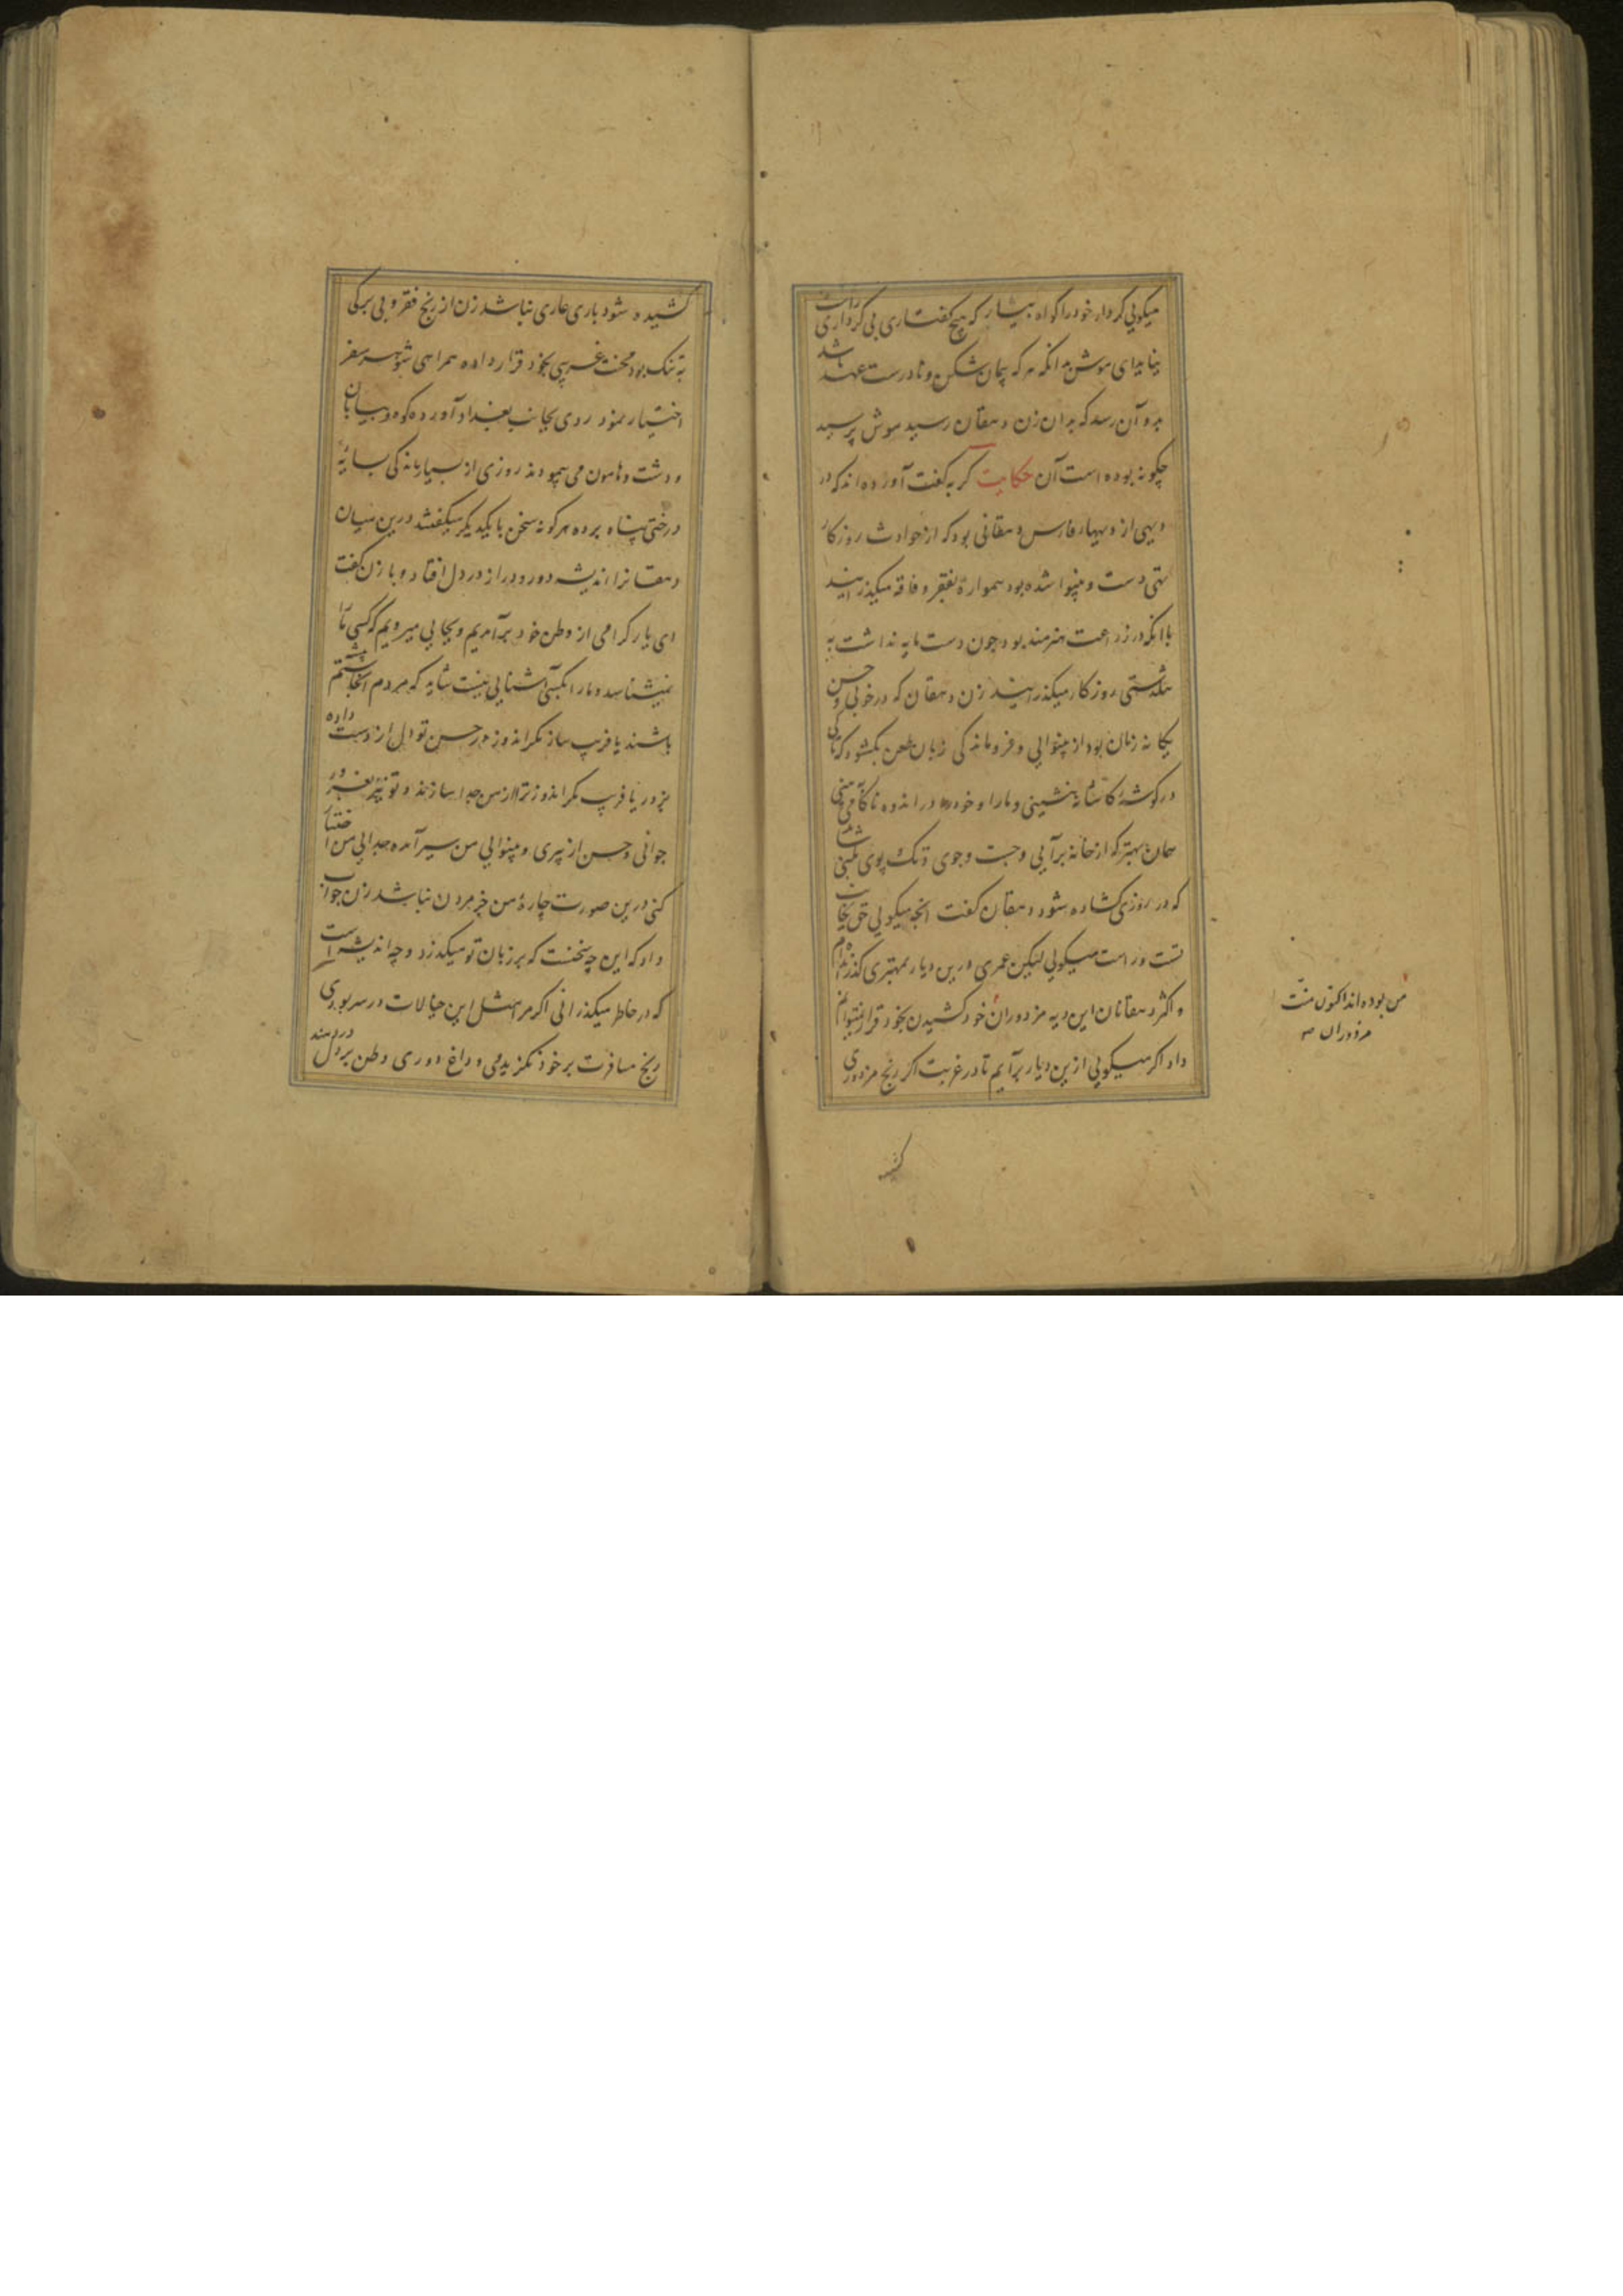 میکویی کردار خود را کواه بیشار که هیچ کفتاری بی کرداری راست
نیاید ای موش بدانکه هر که پیمان شکن و نادرست عهد باشد
بدو آن رسد که بدان زن دهقان رسید موش پرسید
چکونه بوده است آن حکایت کربه کفت آورده اند که در
دیهی از دیهای فارس دهقانی بود که از حوادث روزکار
تهی دست و بینوا شده بود همواره بفقر و فاقه میکذرانید
با انکه در زراعت هنرمند بود چون دست مایه نداشت به
تنکدستی روزکار میکذرانید زن دهقان که در خوبی و حسن
یکانه زمان بود از بینوایی و فروماندکی زبان طعن بکشود که تا کی
در کوشهٔ کاشانه نشینی و مارا و خود را در اندوه ناکامی بینی
همان بهتر که از خانه برآیی و جست و جوی و تک پوی کنی شاید
که در روزی کشاده شود دهقان کفت انچه میکویی حق بجانب
تست و راست میکویی لیکن عمری درین دیار بمهتری کذرانده ام
و اکثر دهقانان این دیه مزدوران خود کشیدن بخود قرار نمیتوانم
داد اکر میکویی ازین دیار برآیم تا در غربت اکر رنج مزدوری
من بوده اند اکنون منّت
مزدوران صح
کشیده شود باری عاری نباشد زن از رنج فقر و بی برکی
به تنک بود محنت غریبی بخود قرار داده همراهی شوهر سفر
اختیار نمود روی بجانب بغداد آورده کوه و بیابان
و دشت و هامون می پیمودند روزی از بسیار ماندکی بسایه
درختی پناه برده هر کونه سخن با یکدیکر میکفتند درین میان
دهقانرا اندیشه دور و دراز در دل افتاد و با زن کفت
ای یار کرامی از وطن خود برآمدیم و بجایی میرویم که کسی ما را
نمیشناسد و مارا بکسی آشنایی نیست شاید که مردم آنجا ستم پیشه
باشند یا فریب ساز مکراندوز در حسن تو دل از دست داده
بزور یا فریب مکراندوز ترا از من جدا سازند و تو نیز بغرور
جوانی و حسن از پیری و بینوایی من سیر آمده جدایی من اختیار
کنی درین صورت چارهٔ من جز مردن نباشد زن جواب
داد که این چه سخنست که بر زبان تو میکذرد و چه اندیشه است
که در خاطر میکذرانی اکر مرا مثل این خیالات در سر بودی
رنج مسافرت بر خود نکزیدمی و داغ دوری وطن بر دل دردمند